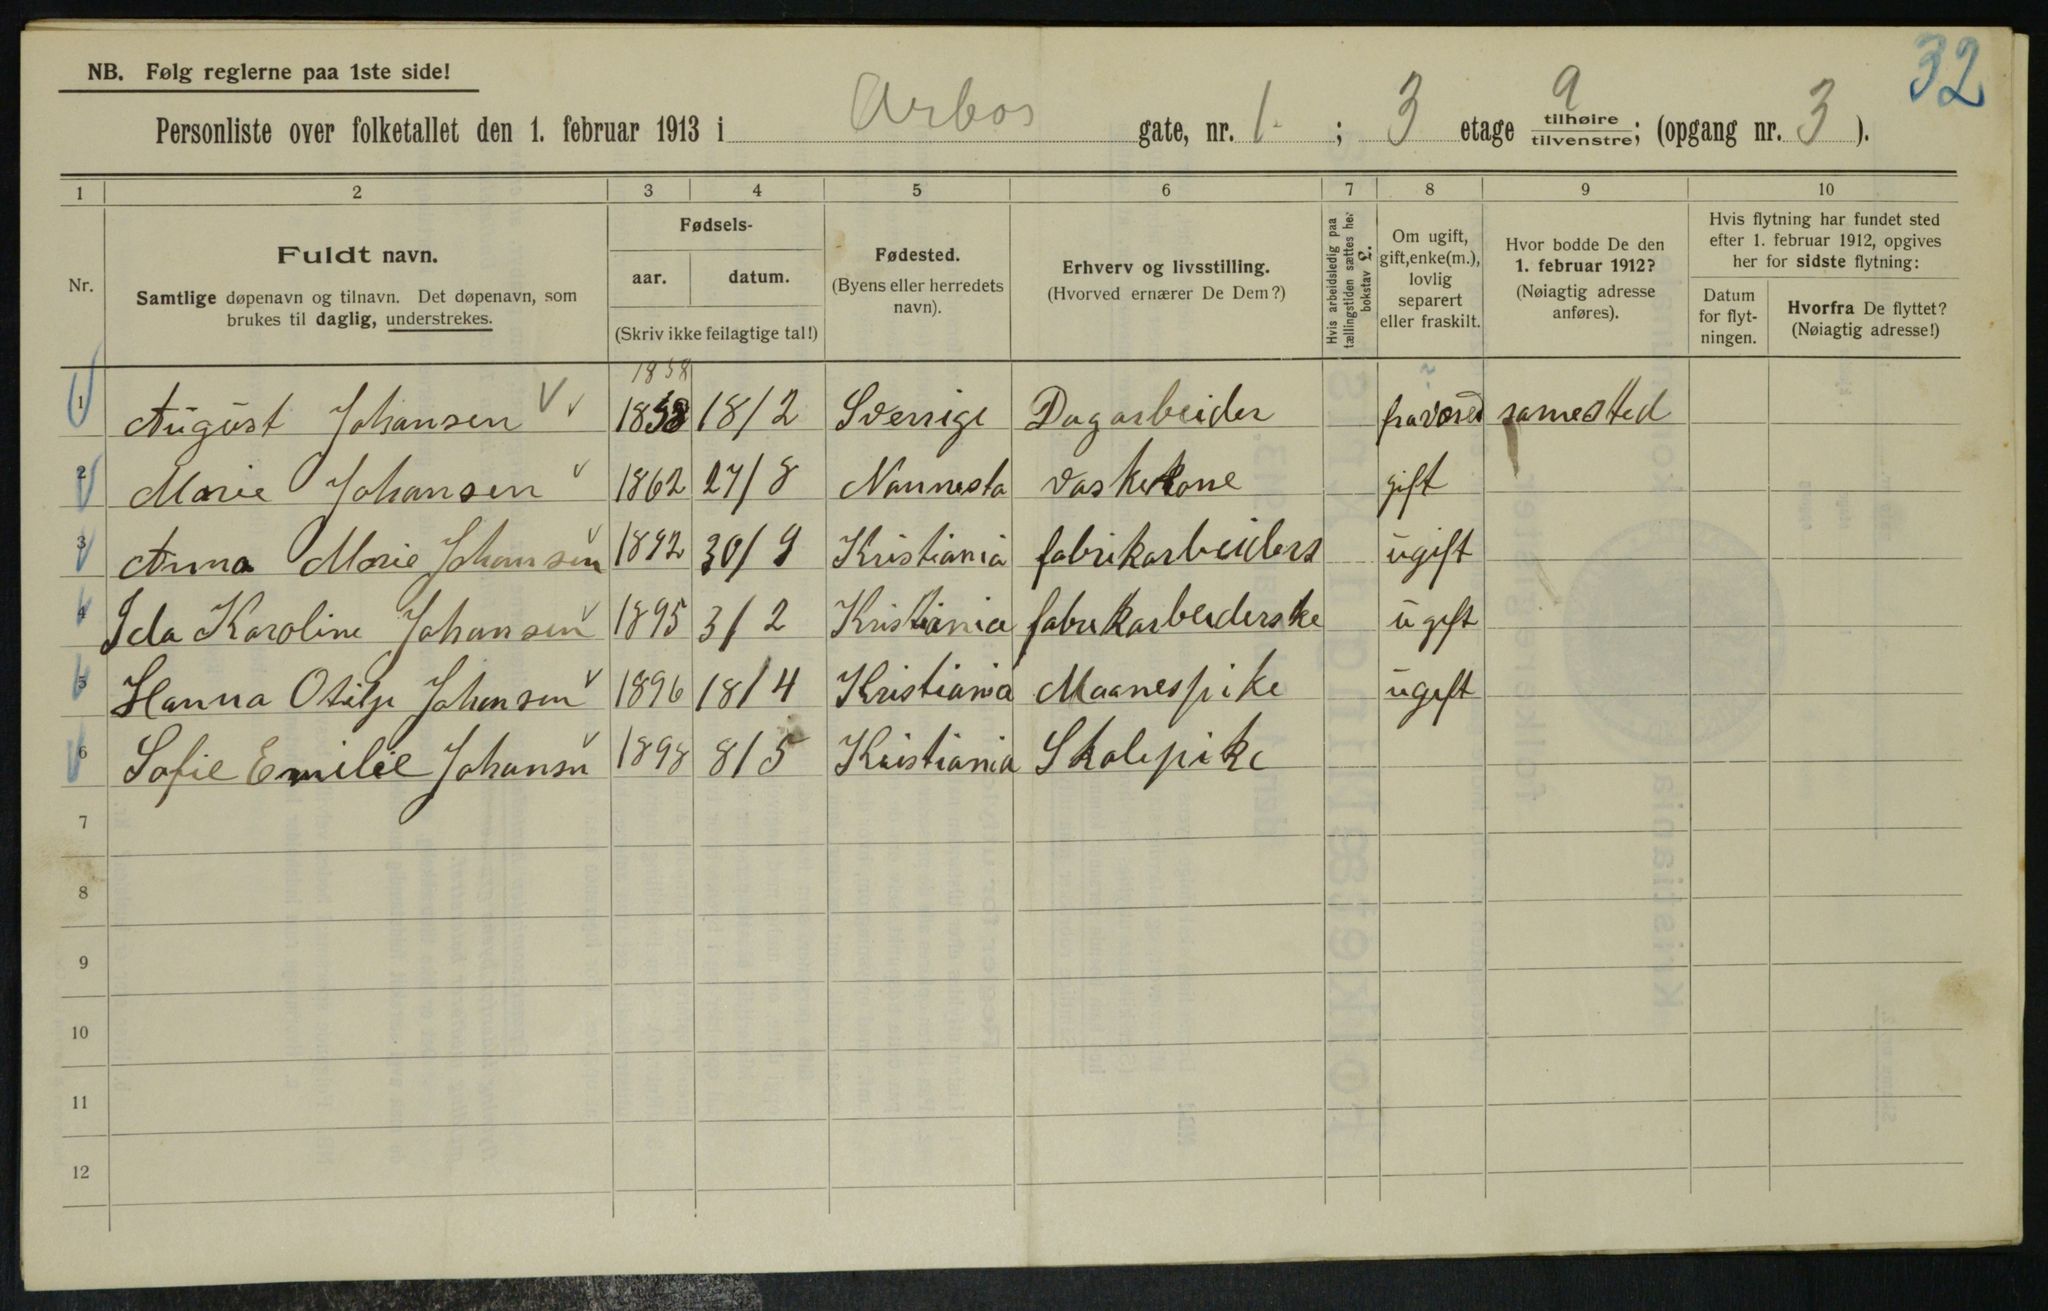 32
NB. Følg reglerne paa 1ste side!
Personliste over folketallet den 1. februar 1913 i Arbos gate, nr. 1 ; 3 etage tilhøire/tilvenstre; (opgang nr. 3 ).
1 2 3 4 5 6 7 8 9 10
Nr.
Fuldt navn.
Samtlige døpenavn og tilnavn. Det døpenavn, som
brukes til daglig, understrekes.
Fødsels-
aar. datum.
(Skriv ikke feilagtige tal!)
Fødested.
(Byens eller herredets
navn).
Erhverv og livsstilling.
(Hvorved ernærer De Dem?)
Hvis arbeidsledig paa
tællingstiden sættes her
bokstav L.
Om ugift,
gift, enke(m.),
lovlig
separert
eller fraskilt.
Hvor bodde De den
1. februar 1912?
(Nøiagtig adresse
anføres).
Hvis flytning har fundet sted
efter 1. februar 1912, opgives
her for sidste flytning:
Datum
for flyt-
ningen.
Hvorfra De flyttet?
(Nøiagtig adresse!)
1858
1 August Johansen 1858 18/2 Sverrige Dagarbeider samested
2 Marie Johansen 1862 27/8 Nannesta vaskekone gift
3 Anna Marie Johansen 1892 30/9 Kristiania fabrikarbeiders ugift
4 Ida Karoline Johansen 1895 3/2 Kristiania fabrikarbeiderske ugift
5 Hanna Otilje Johansen 1896 18/4 Kristiania Maanespike ugift
6 Sofie Emilie Johansen 1898 8/5 Kristiania Skolepike
7
8
9
10
11
12